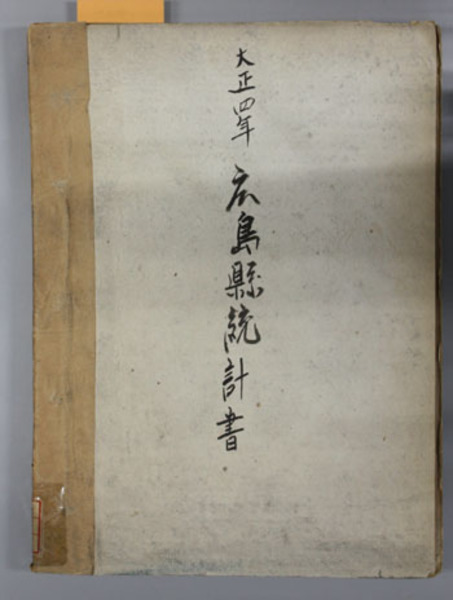 大正四年 広島縣統計書